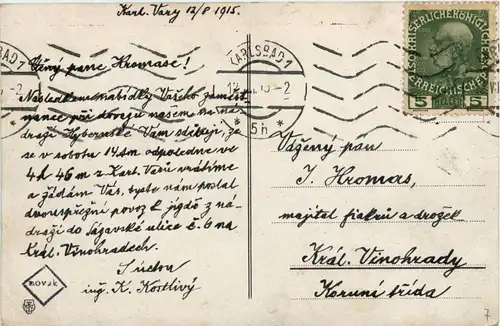 Karl. Vary 12/8 1915.
Ctěný pane Hromase!
Následkem nabídky Vašeho zaměst-
nance při dovozu našem na ná-
draží Hybernské Vám sděluji, že
se v sobotu 14. tm odpoledne ve
4h 46m z Karl. Varů vrátíme
a žádám Vás, byste nám poslal
dvouspřežní povoz k jízdě z ná-
draží do Sázavské ulice č. 6 na
Král. Vinohradech.
S úctou
ing. K. Kostlivý
NOVÁK
KARLSBAD 1
5h
KAISERLICHE KÖNIGLICHE
ÖSTERREICHISCHE
5 HELLER 5
Vážený pán
J. Hromas,
majitel fiakrů a drožek
Král. Vinohrady
Korunní třída
7